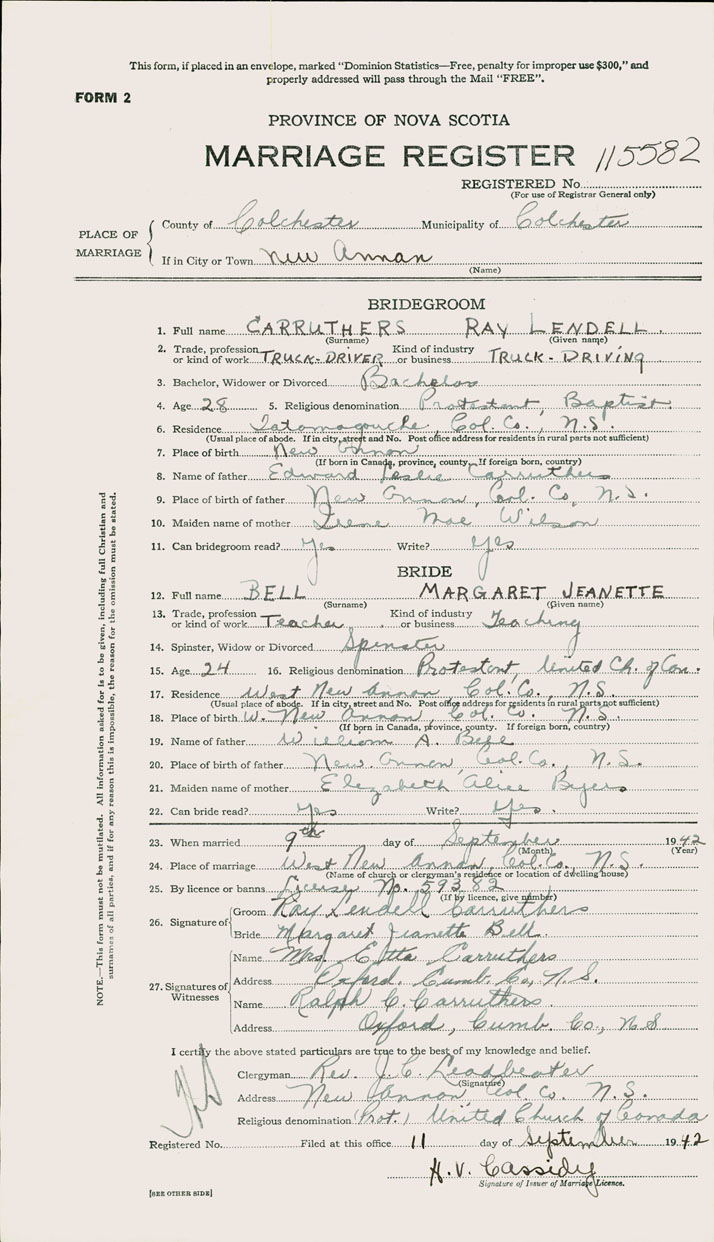 This form, if placed in an envelope, marked "Dominion Statistics—Free, penalty for improper use $300," and
properly addressed will pass through the Mail "FREE".
FORM 2
PROVINCE OF NOVA SCOTIA
MARRIAGE REGISTER 115582
REGISTERED No.
(For use of Registrar General only)
PLACE OF MARRIAGE
County of Colchester Municipality of Colchester
If in City or Town New Annan
(Name)
BRIDEGROOM
1. Full name CARRUTHERS RAY LENDELL
(Surname) (Given name)
2. Trade, profession or kind of work TRUCK-DRIVER Kind of industry or business TRUCK-DRIVING
3. Bachelor, Widower or Divorced Bachelor
4. Age 28 5. Religious denomination Protestant, Baptist
6. Residence Tatamagouche, Col. Co., N.S.
(Usual place of abode. If in city, street and No. Post office address for residents in rural parts not sufficient)
7. Place of birth New Annan
(If born in Canada, province, county. If foreign born, country)
8. Name of father Edward Leslie Carruthers
9. Place of birth of father New Annan, Col. Co, N.S.
10. Maiden name of mother Irene Mae Wilson
11. Can bridegroom read? Yes Write? Yes
BRIDE
12. Full name BELL MARGARET JEANETTE
(Surname) (Given name)
13. Trade, profession or kind of work Teacher Kind of industry or business Teaching
14. Spinster, Widow or Divorced Spinster
15. Age 24 16. Religious denomination Protestant, United Ch. of Can.
17. Residence West New Annan, Col. Co., N.S.
(Usual place of abode. If in city, street and No. Post office address for residents in rural parts not sufficient)
18. Place of birth W. New Annan, Col. Co. N.S.
(If born in Canada, province, county. If foreign born, country)
19. Name of father William A. Bell
20. Place of birth of father New Annan, Col. Co., N.S.
21. Maiden name of mother Elezabeth Alice Byers
22. Can bride read? Yes Write? Yes.
23. When married 9th day of September 1942
(Month) (Year)
24. Place of marriage West New Annan, Col. Co. N.S.
(Name of church or clergyman's residence or location of dwelling house)
25. By licence or banns License No. 59382
(If by licence, give number)
26. Signature of
Groom Ray Lendell Carruthers
Bride Margaret Jeanette Bell
27. Signatures of Witnesses
Name Mrs. Etta Carruthers
Address Oxford, Cumb. Co, N.S.
Name Ralph C. Carruthers
Address Oxford, Cumb. Co., N.S
I certify the above stated particulars are true to the best of my knowledge and belief.
Clergyman Rev. J. C. Leadbeater
(Signature)
Address New Annan, Col. Co. N.S.
Religious denomination (Prot.) United Church of Canada
Registered No. Filed at this office 11 day of September 1942
H. V. Cassidy
Signature of Issuer of Marriage Licence.
[SEE OTHER SIDE]
NOTE.—This form must not be mutilated. All information asked for is to be given, including full Christian and
surnames of all parties, and if for any reason this is impossible, the reason for the omission must be stated.